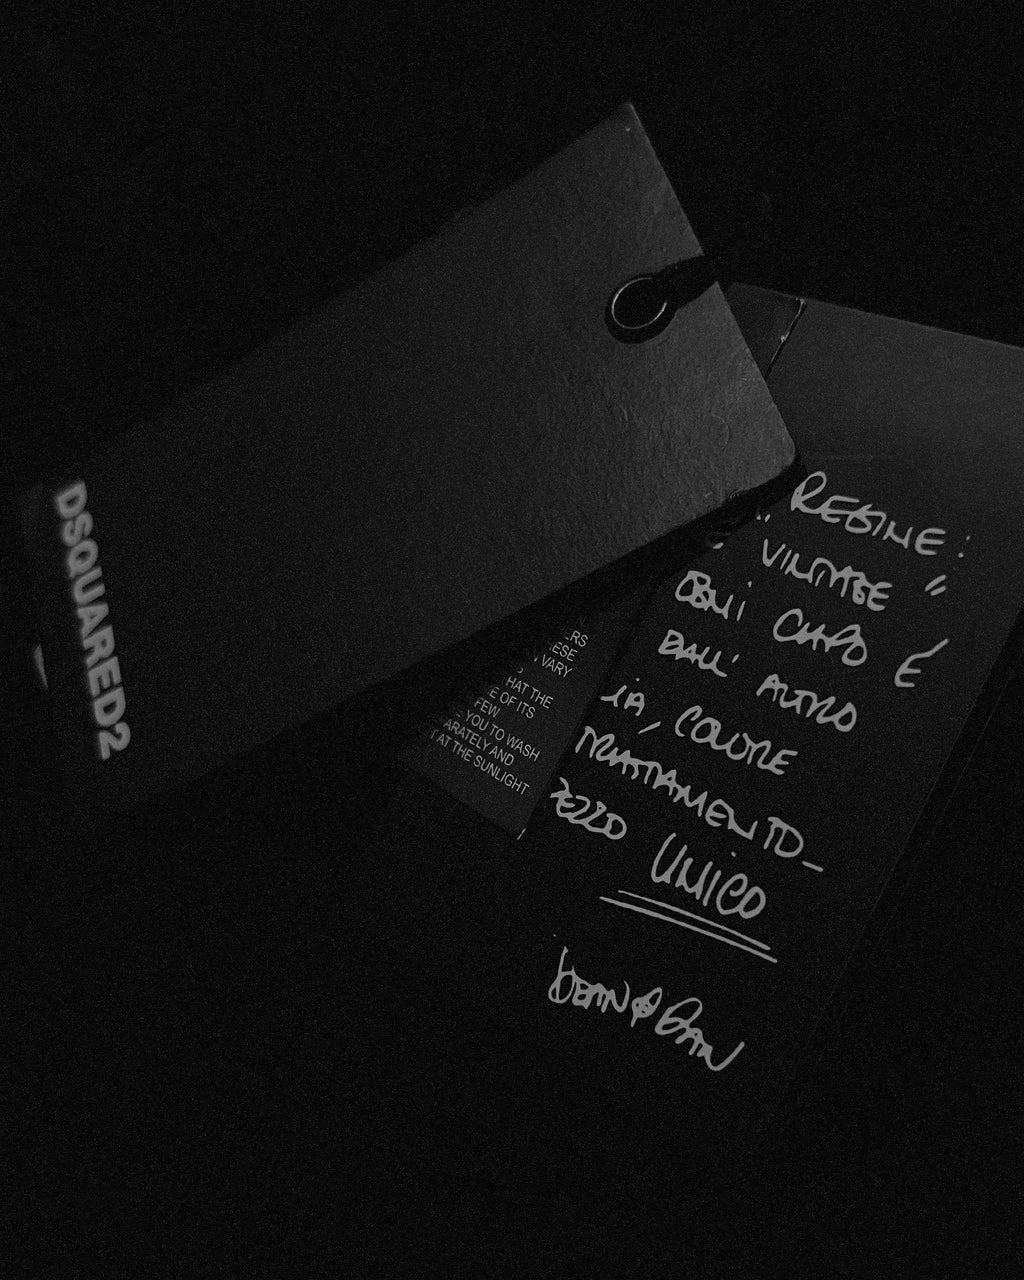 DSQUARED2
ERS
ESE
VARY
HAT THE
E OF ITS
FEW
YOU TO WASH
ARATELY AND
T AT THE SUNLIGHT
REGINE:
"VINTAGE"
OGNI CAPO È
DALL' ALTRO
IA, COLORE
TRATTAMENTO_
EZZO UNICO
DEAN & DAN